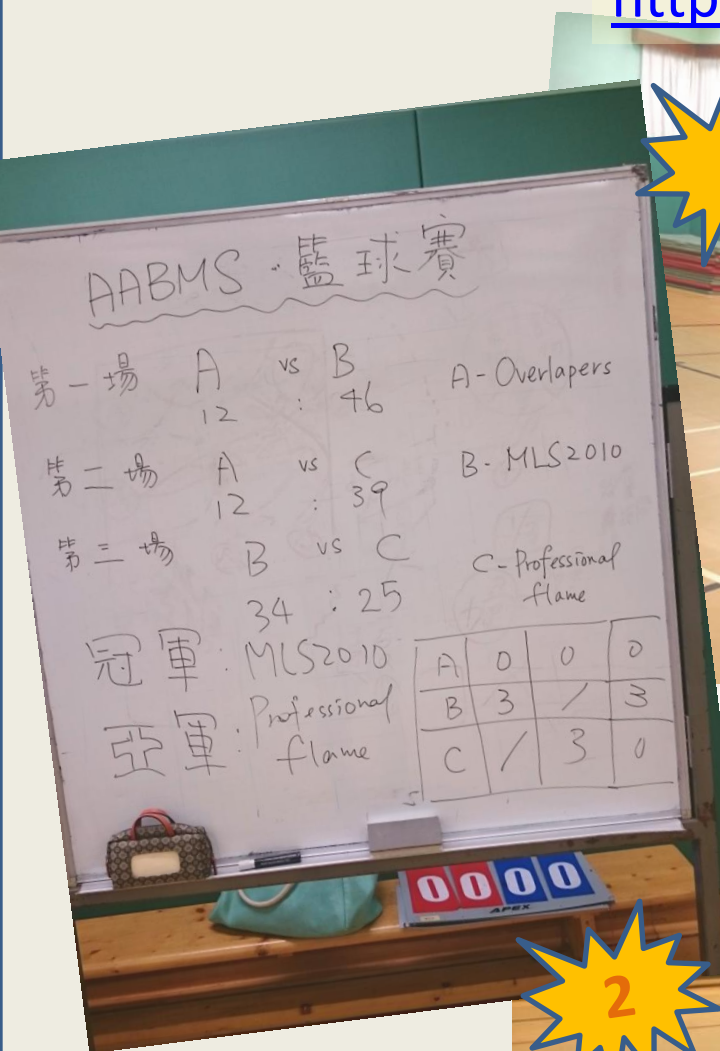 http
AABMS · 籃球賽
第一場 A vs B
12 : 46
A - Overlapers
第二場 A vs C
12 : 39
B - MLS2010
第三場 B vs C
34 : 25
C - Professional
flame
冠軍 : MLS2010
亞軍 : Professional
flame
A 0 0 0
B 3 / 3
C / 3 0
0 0 0 0
APEX
2